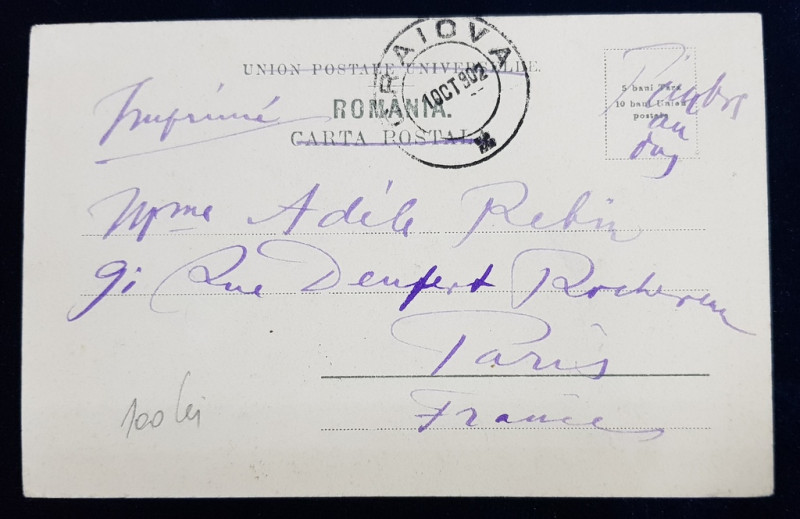 CRAIOVA
1 OCT 902
UNION POSTALE UNIVERSELLE.
ROMANIA.
CARTA POSTALA
5 bani Tara
10 bani Uniun
postala
Timbre
au
dos
Imprimé
Mme Adéle Rebin
91 Rue Denfert Rochereau
Paris
France
100 lei